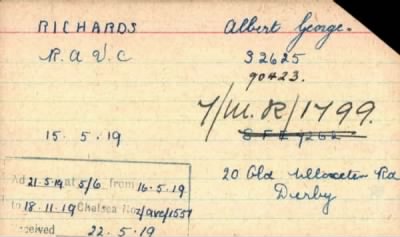 RICHARDS Albert George.
R.A.V.C 32625
90423.
7/M.R/1799.
15.5.19
20 Old Rd
Derby
21.5.19 at 5/6 from 16.5.19
to 18.11.19 Chelsea No
22.5.19